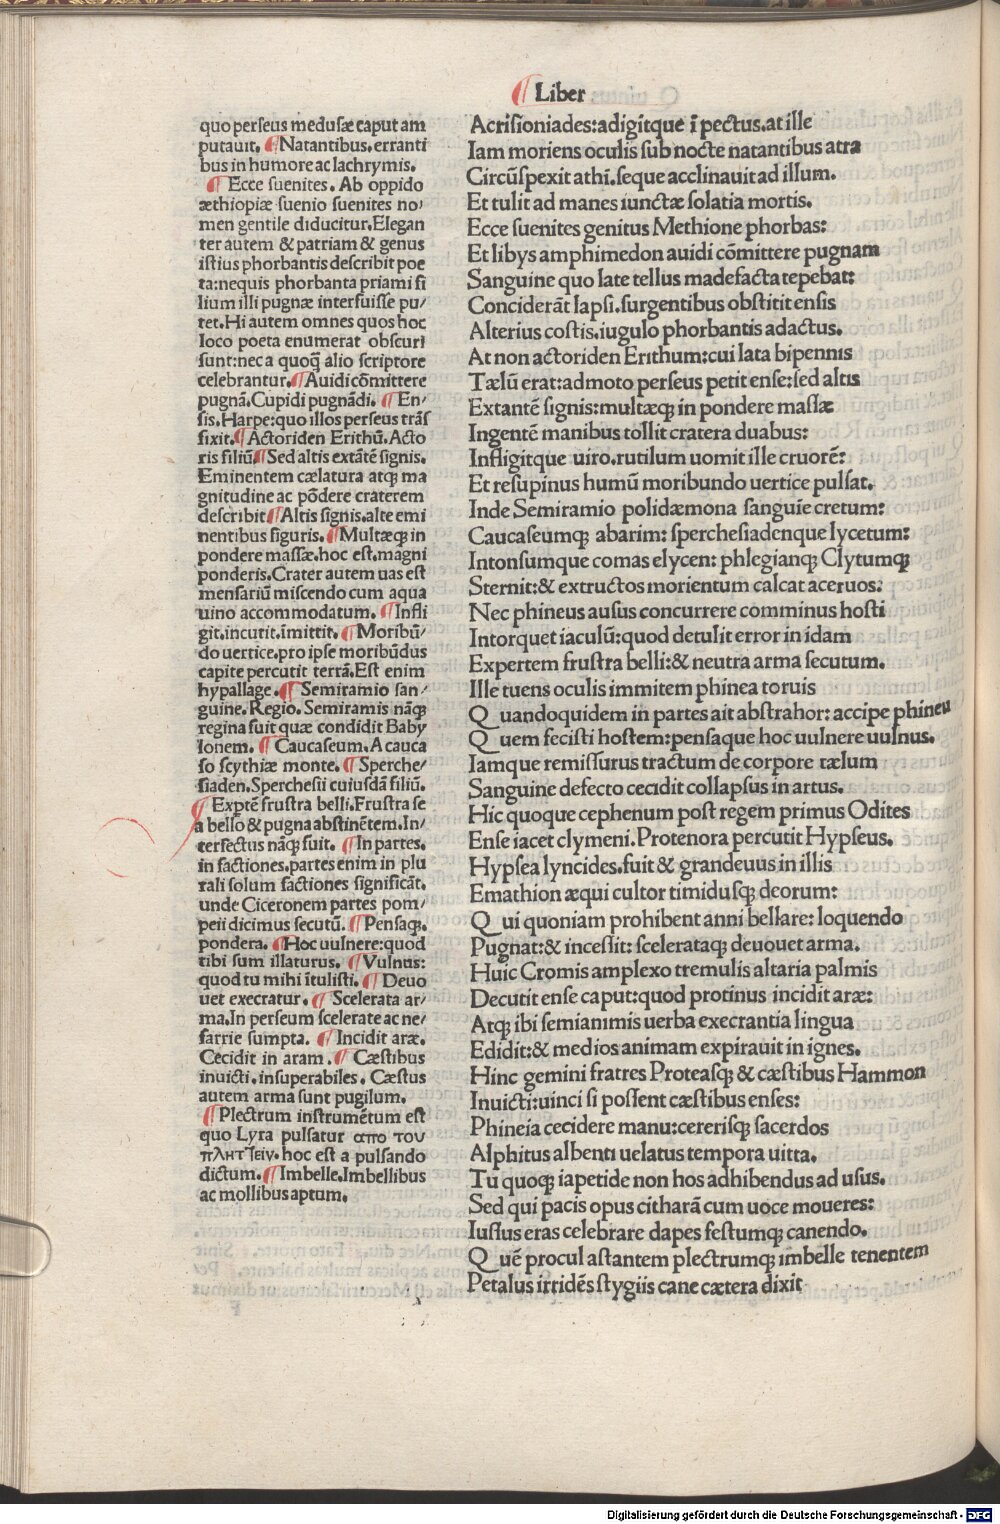 ¶ Liber
quo perseus medusæ caput am
putauit. ¶ Natantibus. erranti
bus in humore ac lachrymis.
¶ Ecce suenites. Ab oppido
æthiopiæ suenio suenites no/
men gentile diducitur. Elegan
ter autem & patriam & genus
istius phorbantis describit poe
ta: nequis phorbanta priami fi
lium illi pugnæ interfuisse pu/
tet. Hi autem omnes quos hoc
loco poeta enumerat obscuri
sunt: nec a quoq̃ alio scriptore
celebrantur. ¶ Auidi cōmittere
pugnā. Cupidi pugnādi. ¶ En/
sis. Harpe: quo illos perseus trāf
fixit. ¶ Actoriden Erithū. Acto
ris filiū. ¶ Sed altis extātē signis.
Eminentem cælatura atq; ma
gnitudine ac pōdere craterem
describit ¶ Altis signis. alte emi
nentibus figuris. ¶ Multæq; in
pondere massæ. hoc est. magni
ponderis. Crater autem uas est
mensariū miscendo cum aqua
uino accommodatum. ¶ Infli
git. incutit. īmittit. ¶ Moribū/
do uertice. pro ipse moribūdus
capite percutit terrā. Est enim
hypallage. ¶ Semiramio san/
guine. Regio. Semiramis nāq;
regina fuit quæ condidit Baby
lonem. ¶ Caucaseum. A cauca
so scythiæ monte. ¶ Sperche/
siaden. Sperchesii cuiusdā filiū.
¶ Exptē frustra belli. Frustra se
a bello & pugna abstinētem. In/
terfectus nāq; fuit. ¶ In partes.
in factiones. partes enim in plu
rali solum factiones significāt.
unde Ciceronem partes pom/
peii dicimus secutū. ¶ Pensaq;.
pondera. ¶ Hoc uulnere: quod
tibi sum illaturus. ¶ Vulnus:
quod tu mihi ītulisti. ¶ Deuo
uet execratur. ¶ Scelerata ar/
ma. In perseum scelerate ac ne/
farrie sumpta. ¶ Incidit aræ.
Cecidit in aram. ¶ Cæstibus
inuicti. insuperabiles. Cæstus
autem arma sunt pugilum.
¶ Plectrum instrumētum est
quo Lyra pulsatur απο του
πλητΤειν. hoc est a pulsando
dictum. ¶ Imbelle. Imbellibus
ac mollibus aptum.
Acrisioniades: adigitque ī pectus. at ille
Iam moriens oculis sub nocte natantibus atra
Circūspexit athī. seque acclinauit ad illum.
Et tulit ad manes iunctæ solatia mortis.
Ecce suenites genitus Methione phorbas:
Et libys amphimedon auidi cōmittere pugnam
Sanguine quo late tellus madefacta tepebat:
Conciderāt lapsi. surgentibus obstitit ensis
Alterius costis. iugulo phorbantis adactus.
At non actoriden Erithum: cui lata bipennis
Tælū erat: admoto perseus petit ense: sed altis
Extantē signis: multæq; in pondere massæ
Ingentē manibus tollit cratera duabus:
Infligitque uiro. rutilum uomit ille cruorē:
Et resupinus humū moribundo uertice pulsat.
Inde Semiramio polidæmona sanguīe cretum:
Caucaseumq; abarim: sperchesiadenque lycetum:
Intonsumque comas elycen: phlegianq; Clytumq;
Sternit: & extructos morientum calcat aceruos:
Nec phineus ausus concurrere comminus hosti
Intorquet iaculū: quod detulit error in idam
Expertem frustra belli: & neutra arma secutum.
Ille tuens oculis immitem phinea toruis
Quandoquidem in partes ait abstrahor: accipe phineu
Quem fecisti hostem: pensaque hoc uulnere uulnus.
Iamque remissurus tractum de corpore tælum
Sanguine defecto cecidit collapsus in artus.
Hic quoque cephenum post regem primus Odites
Ense iacet clymeni. Protenora percutit Hypseus.
Hypsea lyncides. fuit & grandeuus in illis
Emathion æqui cultor timidusq; deorum:
Qui quoniam prohibent anni bellare: loquendo
Pugnat: & incessit: scelerataq; deuouet arma.
Huic Cromis amplexo tremulis altaria palmis
Decutit ense caput: quod protinus incidit aræ:
Atq; ibi semianimis uerba execrantia lingua
Edidit: & medios animam expirauit in ignes.
Hinc gemini fratres Proteasq; & cæstibus Hammon
Inuicti: uinci si possent cæstibus enses:
Phineia cecidere manu: cererisq; sacerdos
Alphitus albenti uelatus tempora uitta.
Tu quoq; iapetide non hos adhibendus ad usus.
Sed qui pacis opus citharā cum uoce moueres:
Iussus eras celebrare dapes festumq; canendo.
Quē procul astantem plectrumq; imbelle tenentem
Petalus irridēs stygiis cane cætera dixit
Digitalisierung gefördert durch die Deutsche Forschungsgemeinschaft - DFG